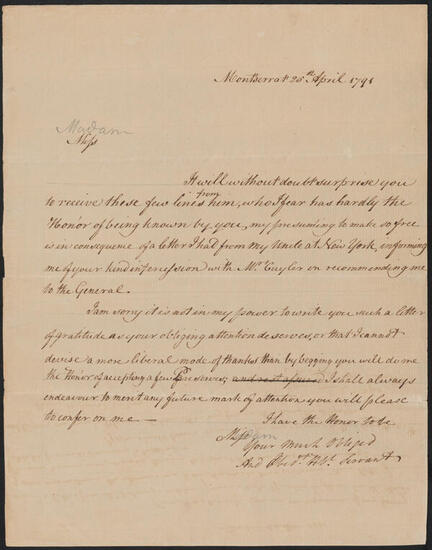 Montserrat 25th April 1791
Madam
Miss
It will without doubt surprise you
to receive these few lines from him, who I fear has hardly the
Honor of being known by you, my presuming to make so free
is in consequence of a letter I had from my Uncle at New York, informing
me of your kind intercession with Mr. Cuyler on recommending me
to the General.
I am sorry it is not in my power to write you such a letter
of gratitude as your obliging attention deserves, or that I cannot
devise a more liberal mode of thanks than by begging you will do me
the Honor of accepting a few Preserves, and rest assured I shall always
endeavour to merit any future mark of attention you will please
to confer on me —
I have the Honor to be
Miss
Your Much Obliged
And Obedt. Hble. Servant